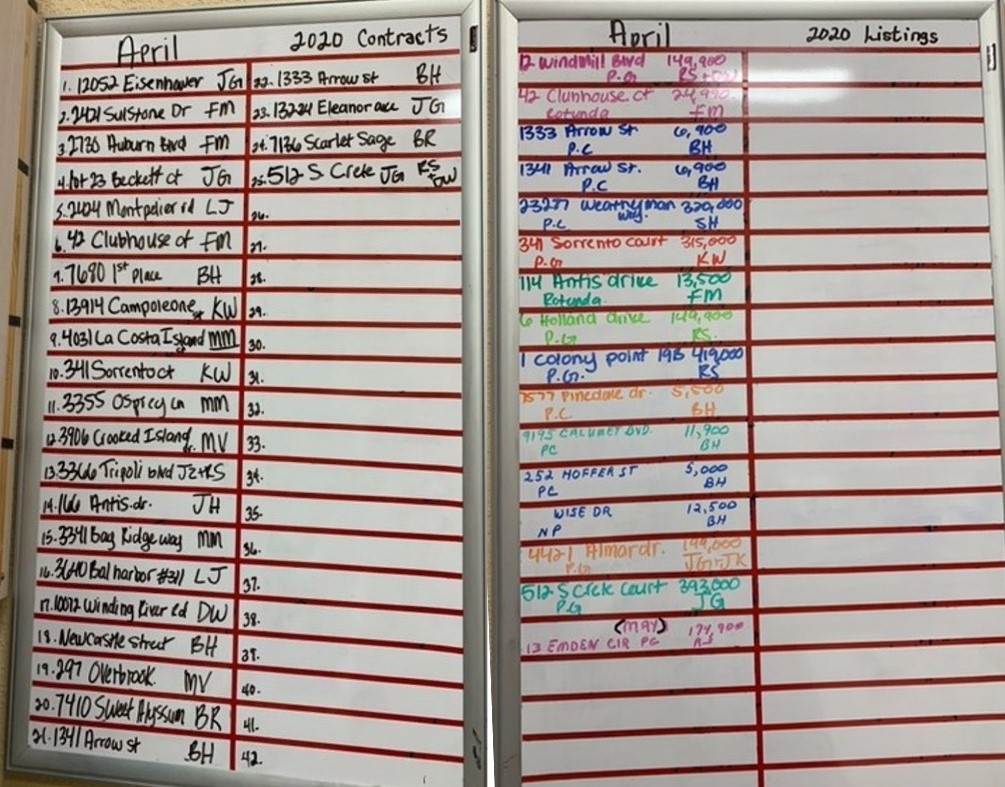 April 2020 Contracts
1. 12052 Eisenhower JG
2. 2421 Sulstone Dr FM
3. 2730 Auburn Blvd FM
4. lot 23 Beckett ct JG
5. 2424 Montpelier rd LJ
6. 42 Clubhouse ct FM
7. 7680 1st Place BH
8. 13914 Campoleone st KW
9. 4031 La Costa Island MM
10. 341 Sorrento ct KW
11. 3355 Osprey Ln MM
12. 3906 Crooked Island dr. MV
13. 3366 Tripoli blvd JZ+RS
14. 166 Antis. dr. JH
15. 3341 Bay Ridge way MM
16. 3640 Bal harbor #311 LJ
17. 10072 Winding River Rd DW
18. Newcastle street BH
19. 297 Overbrook. MV
20. 7410 Sweet Alyssum BR
21. 1341 Arrow st BH
22. 1333 Arrow st BH
23. 13224 Eleanor ave JG
24. 7136 Scarlet Sage BR
25. 512 S Crete JG RS+DW
26.
27.
28.
29.
30.
31.
32.
33.
34.
35.
36.
37.
38.
39.
40.
41.
42.
April 2020 Listings
12 Windmill Blvd 149,900
P.G
42 Clubhouse ct 24,990.
Rotunda FM
1333 Arrow St. 6,900
P.C BH
1341 Arrow St. 6,900
P.C BH
23277 Weatherman way. 320,000
P.C SH
341 Sorrento Court 315,000
P.G KW
114 Antis drive 13,500
Rotunda FM
6 Holland drive 149,900
P.G RS.
1 colony point 19B 419,000
P.G. RS
7577 Pinedale dr. 5,500
P.C BH
9195 CALUMET BVD. 11,900
PC BH
252 HOFFER ST 5,000
PC BH
WISE DR 12,500
NP BH
4421 Almar dr. 199,000
P.G JG+JK
512 S Crete Court 393,000
P.G JG
(MAY) 174,900
13 EMDEN CIR PG RS